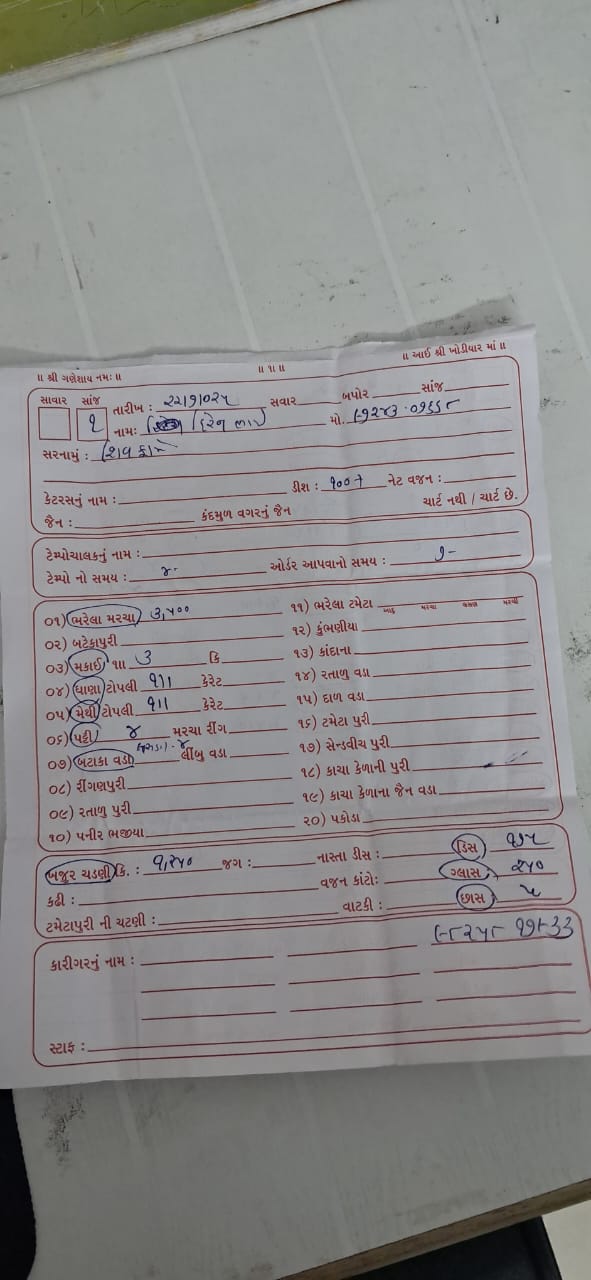 ॥ શ્રી ગણેશાય નમઃ॥ ॥ ૧॥ ॥ આઈ શ્રી ખોડીયાર માં ॥
સાવાર સાંજ
૧ તારીખ : સવાર બપોર સાંજ
નામઃ મો.
સરનામું :
કેટરસનું નામ : ડીશ : નેટ વજન :
જૈન : કંદમુળ વગરનું જૈન ચાર્ટ નથી / ચાર્ટ છે.
ટેમ્પોચાલકનું નામ :
ટેમ્પો નો સમય : ૪- ઓર્ડર આપવાનો સમય : ૭-
૦૧) ભરેલા મરચા ૩,૫૦૦
૦૨) બટેકાપુરી
૦૩) મકાઈ ૩ કિ
૦૪) ધાણા ટોપલી ૧ાા કેરેટ
૦૫) મેથી ટોપલી ૧ાા કેરેટ
૦૬) પટ્ટી ૪ મરચા રીંગ
૦૭) બટાકા વડા લીંબુ વડા
૦૮) રીંગણપુરી
૦૯) રતાળુ પુરી
૧૦) પનીર ભજીયા
૧૧) ભરેલા ટમેટા
૧૨) કુંભણીયા
૧૩) કાંદાના
૧૪) રતાળુ વડા
૧૫) દાળ વડા
૧૬) ટમેટા પુરી
૧૭) સેન્ડવીચ પુરી
૧૮) કાચા કેળાની પુરી
૧૯) કાચા કેળાના જૈન વડા
૨૦) પકોડા
ખજુર ચટણી કિ. : ૧,૨૫૦ જગ : નાસ્તા ડીસ : ડિસ ૧૭૫
કઢી : વજન કાંટોઃ ગ્લાસ ૨૫૦
ટમેટાપુરી ની ચટણી : વાટકી : છાસ ૫
કારીગરનું નામ :
સ્ટાફ :